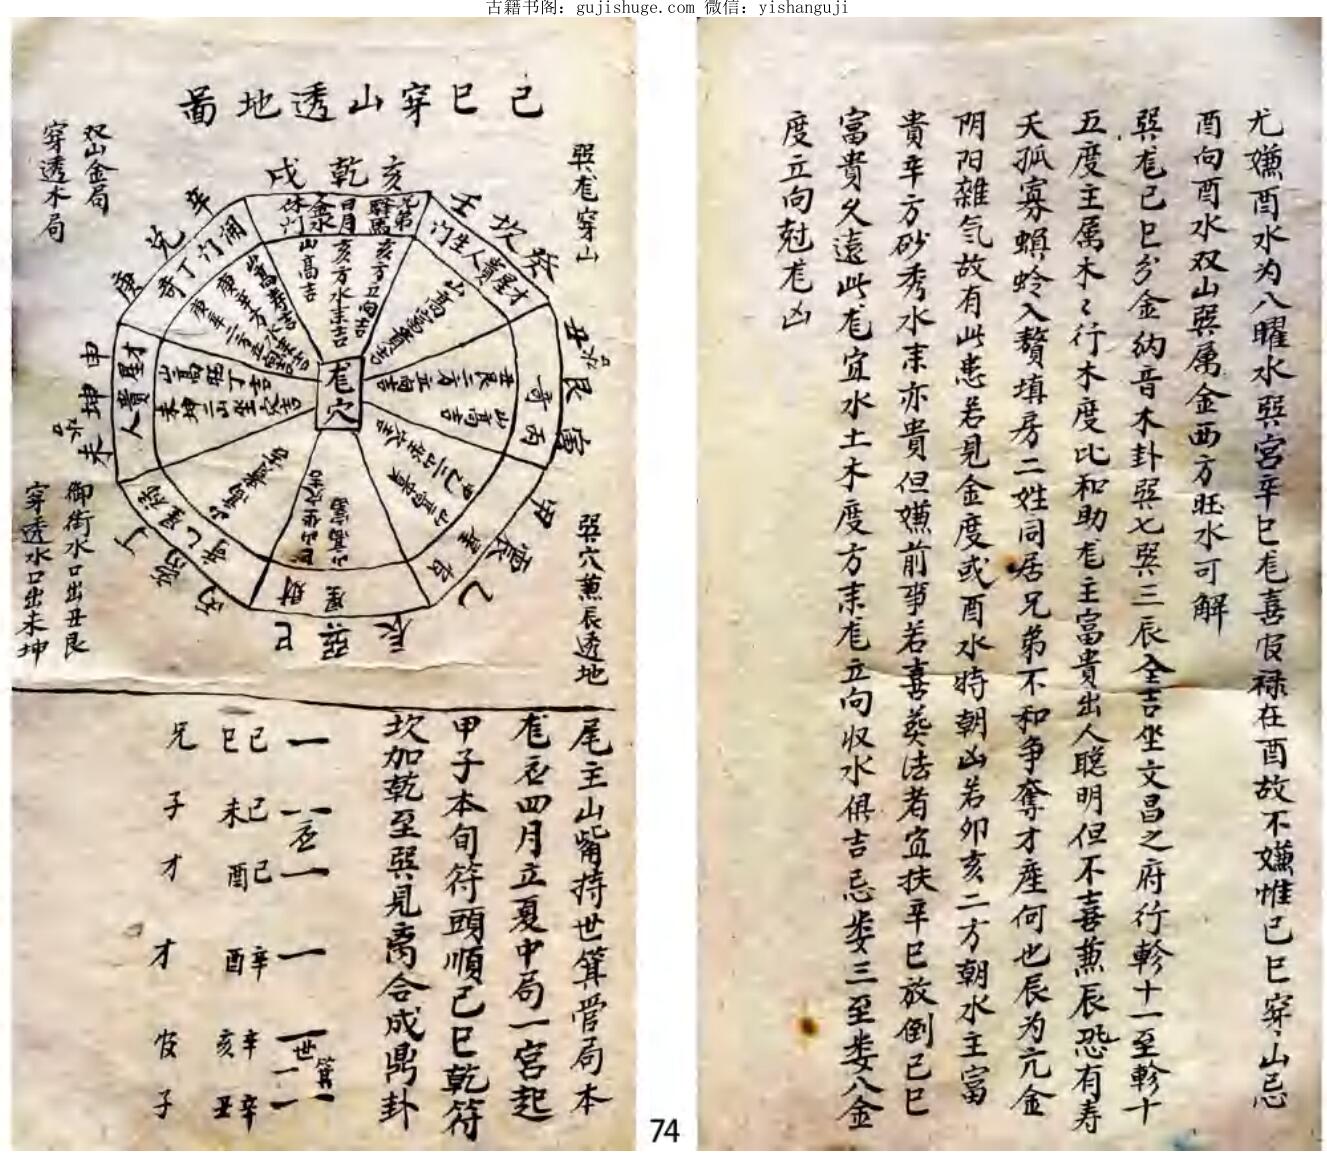 古籍书阁：gujishuge.com 微信：yishanguji
尤嫌酉水为八曜水巽宫辛巳龙喜官禄在酉故不嫌惟己巳穿山忌
酉向酉水双山巽属金西方旺水可解
巽龙己巳分金纳音木卦巽七巽三辰全吉坐文昌之府行轸十一至轸十
五度主属木木行木度比和助龙主富貴出人聪明但不喜兼辰恐有寿
夭孤寡螟蛉入赘填房二姓同居兄弟不和争奪才産何也辰为亢金
阴阳雜气故有此患若見金度或酉水時朝凶若卯亥二方朝水主富
貴辛方砂秀水来亦貴但嫌前事若喜葵法者宜扶辛巳放倒己巳
富貴久遠此龙宜水土木度方来龙立向收水俱吉忌娄三至娄八金
度立向尅龙凶
己巳穿山透地畐
巽龙穿山
双山金局
穿透木局
戌乾亥
壬坎癸
丑艮寅
甲震乙
辰巽巳
未坤申
庚兑辛
龙穴
亥方水来吉
山高吉
門生人貴星才
人貴星才
巽穴兼辰透地
御街水口出丑艮
穿透水口出未坤
尾主山觜持世箕管局本
龙应四月立夏中局一宫起
甲子本旬符頭順己巳乾符
坎加乾至巽見离合成鼎卦
兄 巳己
子 未己 应
才 酉己
才 酉辛
官 亥辛 世
子 丑辛 箕
74